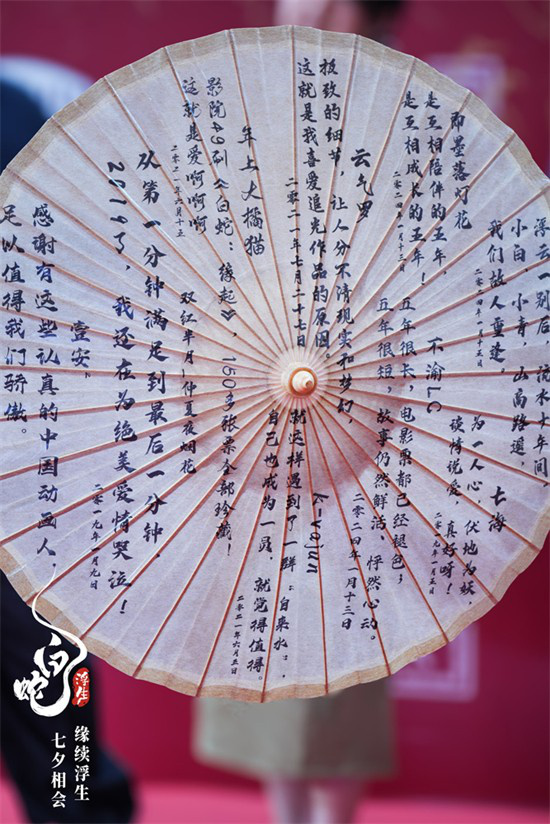 浮云一别后，流水十年间，
小白、小青，山高路遥，
我们故人重逢。
二〇二四年一月十五日
七海
为一人心 伏地为妖，
谈情说爱，真好呀！
二〇一九年一月五日
即墨落灯花
是互相陪伴的五年，
是互相成长的五年！
二〇二四年一月十三日
不渝LC
五年很长，电影票都已经褪色；
五年很短，故事仍然鲜活、怦然心动。
二〇二四年一月十三日
云气罗
极致的细节，让人分不清现实和梦幻，
这就是我喜爱追光作品的原因。
二〇二一年七月二十七日
k-vajun
就这样遇到了一群“自来水”，
自己也成为一员，就觉得值得。
二〇二一年六月五日
年上大橘猫
影院49刷《白蛇：缘起》，150多张票全部珍藏！
这就是爱啊啊啊
二〇二一年六月十五
双红半月/仲夏夜烟花
从第1分钟满足到最后一分钟，
2019了，我还在为绝美爱情哭泣！
二〇一九年一月九日
壹安
感谢有这些认真的中国动画人，
足以值得我们骄傲。
白蛇
浮生
缘续浮生
七夕相会